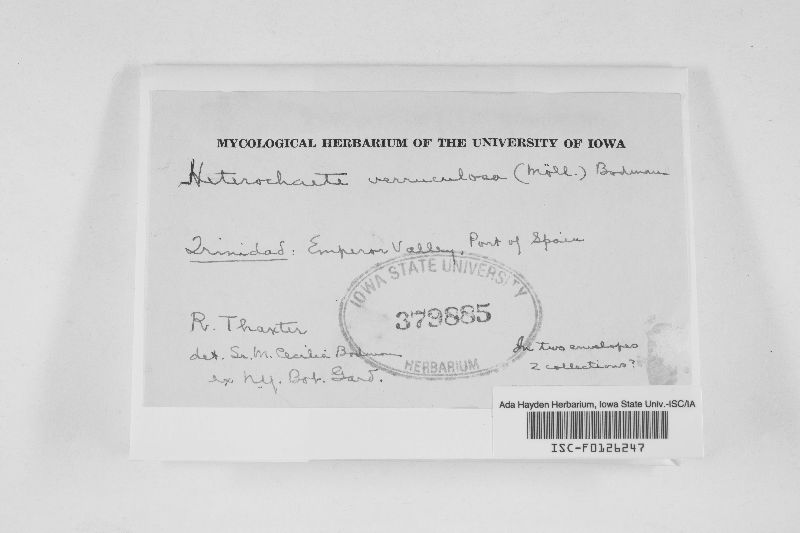 MYCOLOGICAL HERBARIUM OF THE UNIVERSITY OF IOWA
Heterochaete verruculosa (Möll.) Bodman
Trinidad: Emperor Valley, Port of Spain
IOWA STATE UNIVERSITY
379885
HERBARIUM
R. Thaxter
det. Sr. M. Cecilia Bodman
ex N.Y. Bot. Gard.
In two envelopes
2 collections?
Ada Hayden Herbarium, Iowa State Univ.-ISC/IA
ISC-F0126247